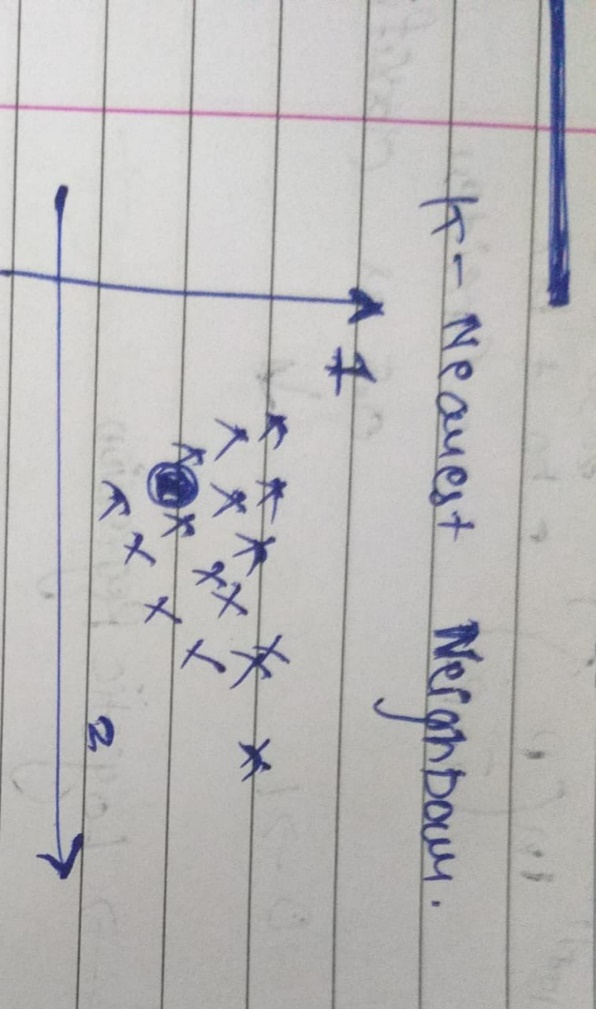 K- Nearest Neighbour.
1
2